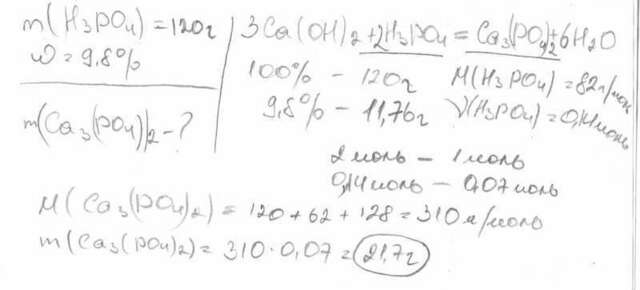 m(H₃PO₄) = 120г
ω = 9,8%
m(Ca₃(PO₄)₂ – ?
3Ca(OH)₂ + 2H₃PO₄ = Ca₃(PO₄)₂ + 6H₂O
100% – 120г
M(H₃PO₄) = 82г/моль
9,8% – 11,76г
ν(H₃PO₄) = 0,14моль
2 моль – 1 моль
0,14 моль – 0,07 моль
M(Ca₃(PO₄)₂) = 120 + 62 + 128 = 310 г/моль
m(Ca₃(PO₄)₂) = 310 · 0,07 = 21,7г